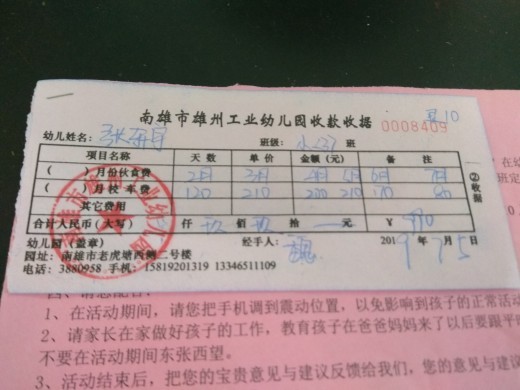 南雄市雄州工业幼儿园收款收据
0008409
幼儿姓名: 张
班级: 小(3) 班
项目名称 天数 单价 金额(元) 备注
( )月份伙食费 2月 3月 4月 5月 6月 7月
( )月校车费 120 210 200 210 170 80
其它费用
合计人民币(大写) 仟 玖 佰 玖 拾 元 ¥ 990
幼儿园(盖章) 经手人: 2019年 7 5
园址: 南雄市老虎塘西侧二号楼
电话: 3880958 手机: 15819201319 13346511109
②收据
1、在活动期间,请您把手机调到震动位置,以免影响到孩子的正常活动
2、请家长在家做好孩子的工作,教育孩子在爸爸妈妈来了以后要跟平
不要在活动期间东张西望。
3、活动结束后,把您的宝贵意见与建议反馈给我们,您的意见与建